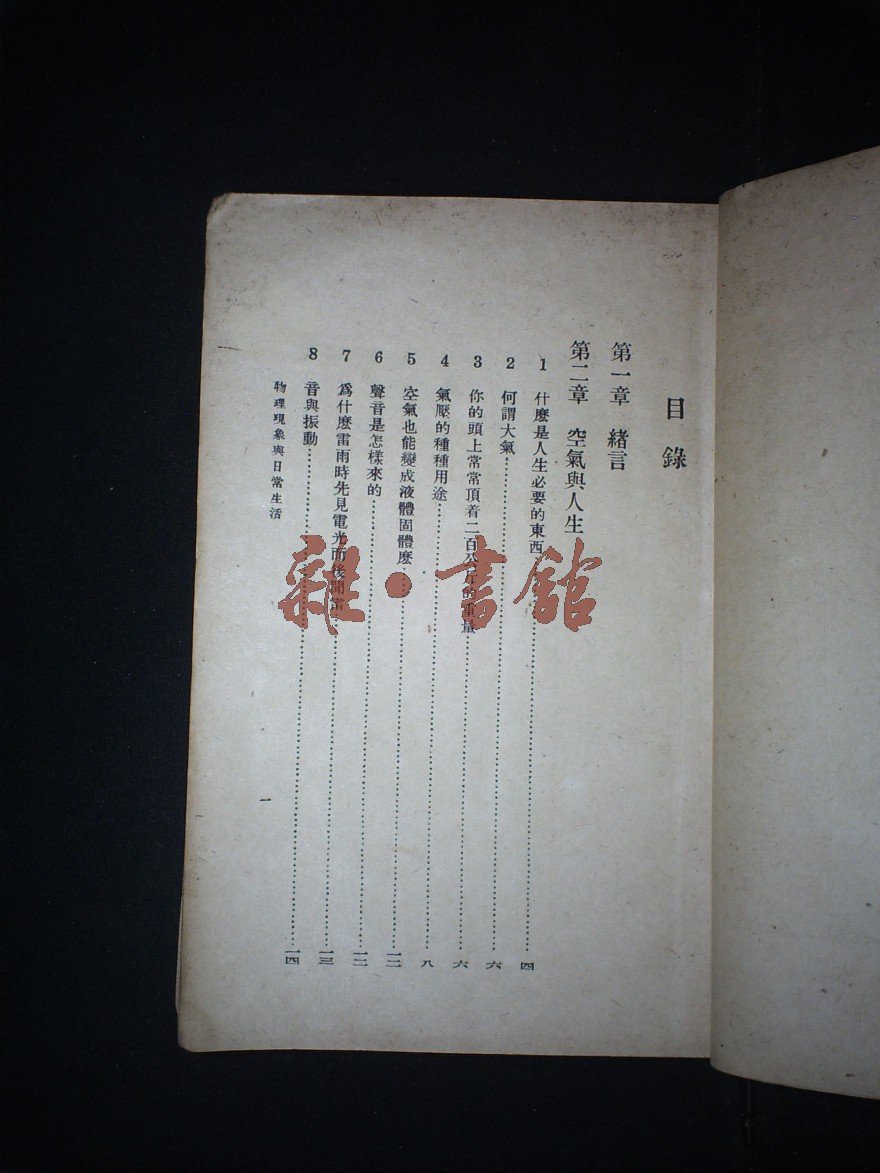 目錄
第一章 緒言
第二章 空氣與人生
1 什麼是人生必要的東西……四
2 何謂大氣……六
3 你的頭上常常頂着二百公斤的重量……六
4 氣壓的種種用途……八
5 空氣也能變成液體固體麽……一二
6 聲音是怎樣來的……一二
7 爲什麽雷雨時先見電光而後聞雷……一三
8 音與振動……一四
物理現象與日常生活
一
雜·書館